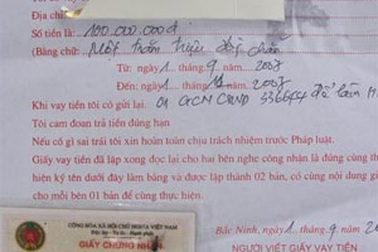 Địa chỉ
Số tiền là: 100.000.000đ
(Bằng chữ: Một trăm triệu đồng chẵn
Từ: ngày 1 tháng 9 năm 2007
Đến: ngày 1 tháng 11 năm 2007
Khi vay tiền tôi có gửi lại. 01 GCN CMND để làm
Tôi cam đoan trả tiền đúng hạn
Nếu có gì sai trái tôi xin hoàn toàn chịu trách nhiệm trước Pháp luật.
Giấy vay tiền đã lập xong đọc lại cho hai bên nghe công nhận là đúng cùng
hiện ký tên dưới đây làm bằng và được lập thành 02 bản, có cùng nội dung
cho mỗi bên 01 bản để cùng thực hiện.
CỘNG HÒA XÃ HỘI CHỦ NGHĨA VIỆT NAM
GIẤY CHỨNG NH
Bắc Ninh, ngày 1 tháng 9 năm 20
NGƯỜI VIẾT GIẤY VAY TIỀN